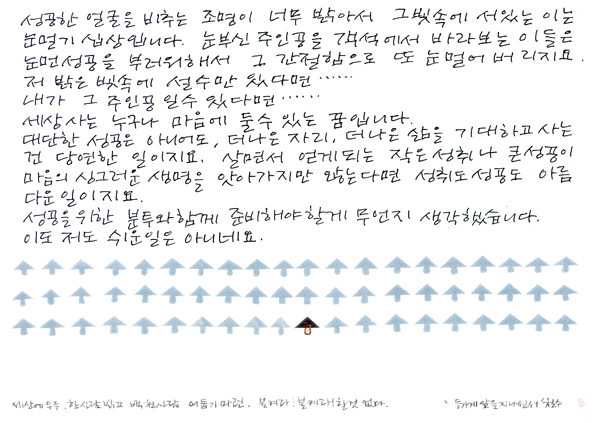 성공한 얼굴을 비추는 조명이 너무 밝아서 그빛속에 서있는 이는
눈멀기 십상입니다. 눈부신 주인공을 객석에서 바라보는 이들은
눈먼성공을 부러워해서 그 간절함으로 또 눈멀어 버리지요.
저 밝은 빛속에 설수만 있다면……
내가 그 주인공 일수 있다면……
세상 사는 누구나 마음에 둘수 있는 꿈입니다.
대단한 성공은 아니어도, 더나은 자리, 더나은 삶을 기대하고 사는
건 당연한 일이지요. 살면서 얻게되는 작은성취나 큰성공이
마음의 싱그러운 생명을 앗아가지만 않는다면 성취도성공도 아름
다운일이지요.
성공을위한 분투와함께 준비해야할게 무언지 생각했습니다.
이도 저도 쉬운일은 아니네요.
세상에 두루, 한사람 밝고 백 천사람 어둡기 마련, 불켜라! 불켜라! 할것 없다.